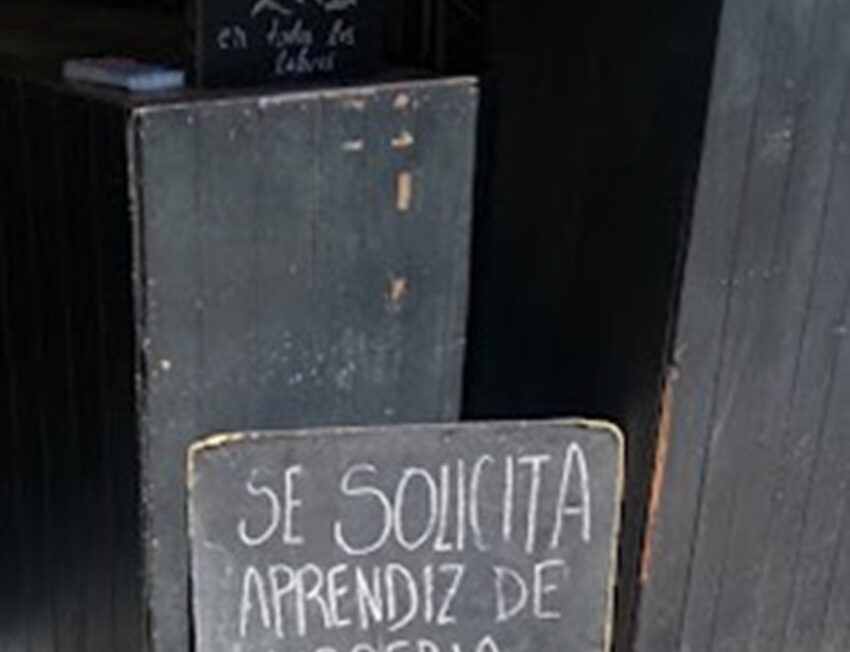 en todos los
libros
SE SOLICITA
APRENDIZ DE